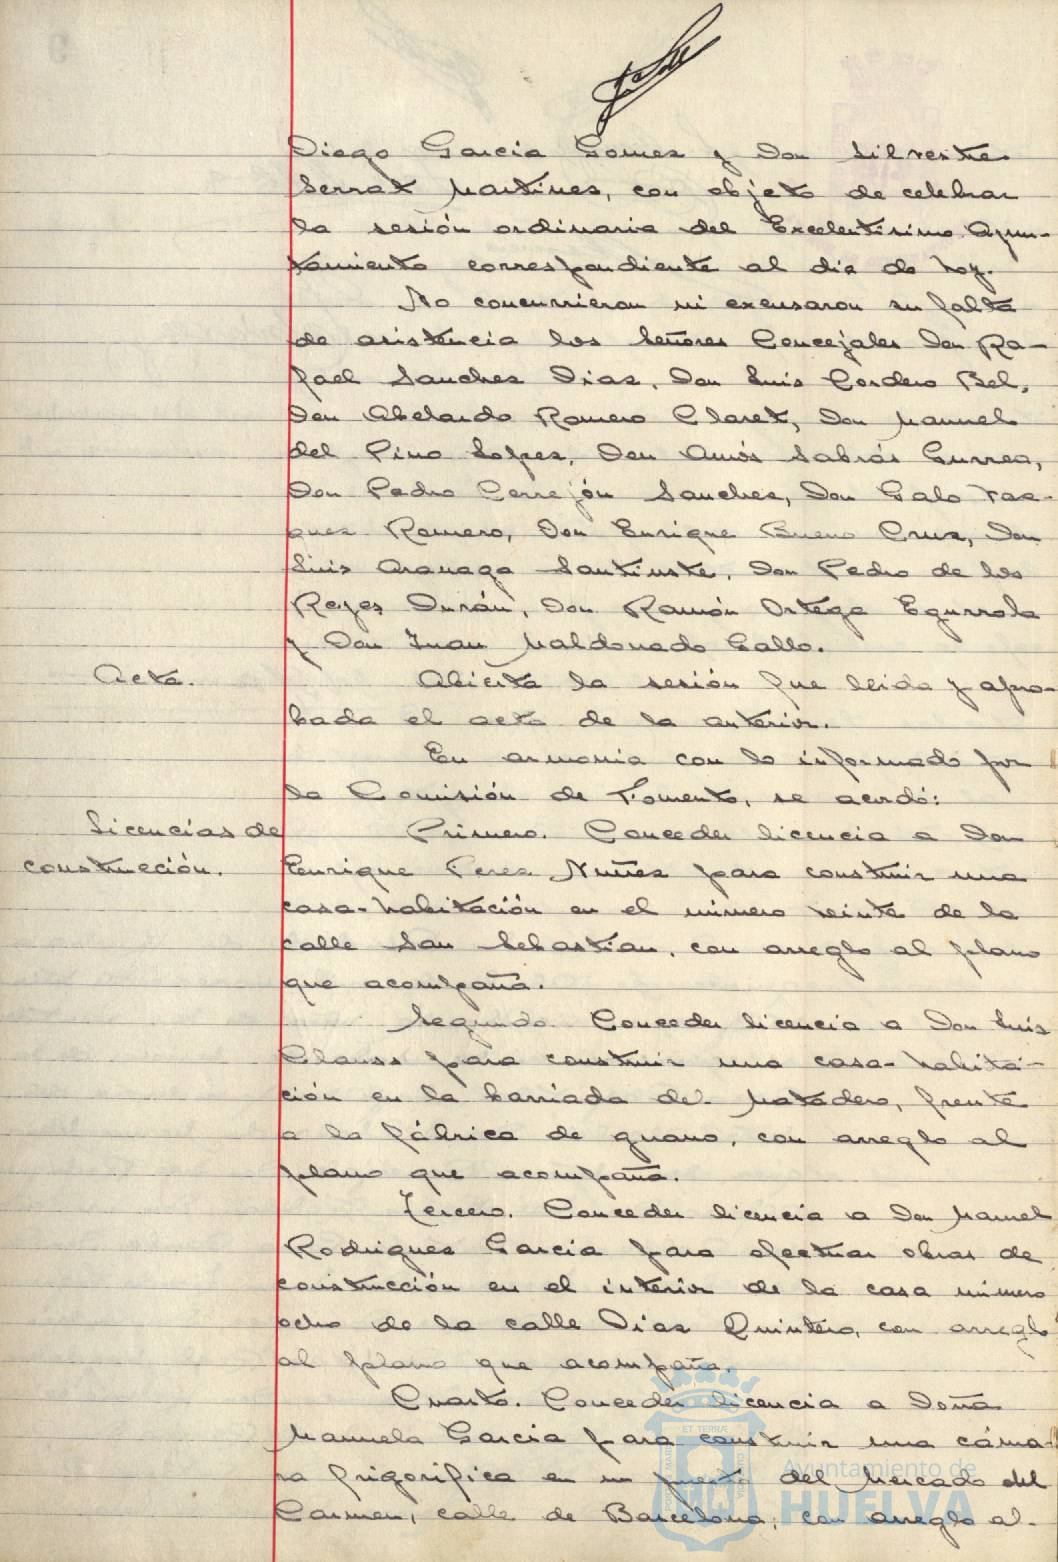 Diego Garcia Gomez y Don Silvestre
Serrat Martinez, con objeto de celebrar
la sesión ordinaria del Excelentisimo Ayun-
tamiento correspondiente al dia de hoy.
No concurrieron ni excusaron su falta
de asistencia los Señores Concejales Don Ra-
fael Sanchez Diaz, Don Luis Cordero Bel,
Don Abelardo Romero Claret, Don Manuel
del Pino Lopez, Don Amós Sabrás Gurrea,
Don Pedro Cerrejón Sanchez, Don Galo Vaz-
quez Romero, Don Enrique Bueno Cruz, Don
Luis Aranaga Santiuste, Don Pedro de los
Reyes Durán, Don Ramón Ortega Egurrola
y Don Juan Maldonado Gallo.
Acta.
Abierta la sesión fue leida y apro-
bada el acta de la anterior.
En armonia con lo informado por
la Comisión de Fomento, se acordó:
Licencias de
construcción.
Primero. Conceder licencia a Don
Enrique Perez Nuñez para construir una
casa-habitación en el número veinte de la
calle San Sebastian, con arreglo al plano
que acompaña.
Segundo. Conceder licencia a Don Luis
para construir una casa-habita-
ción en la barriada del Matadero, frente
a la fábrica de guano, con arreglo al
plano que acompaña.
Tercero. Conceder licencia a Don Manuel
Rodriguez Garcia para efectuar obras de
construcción en el interior de la casa número
ocho de la calle Diaz Quintero, con arreglo
al plano que acompaña.
Cuarto. Conceder licencia a Doña
Manuela Garcia para construir una cáma-
ra frigorifica en un puesto del Mercado del
Carmen, calle de Barcelona, con arreglo al
Ayuntamiento de
HUELVA